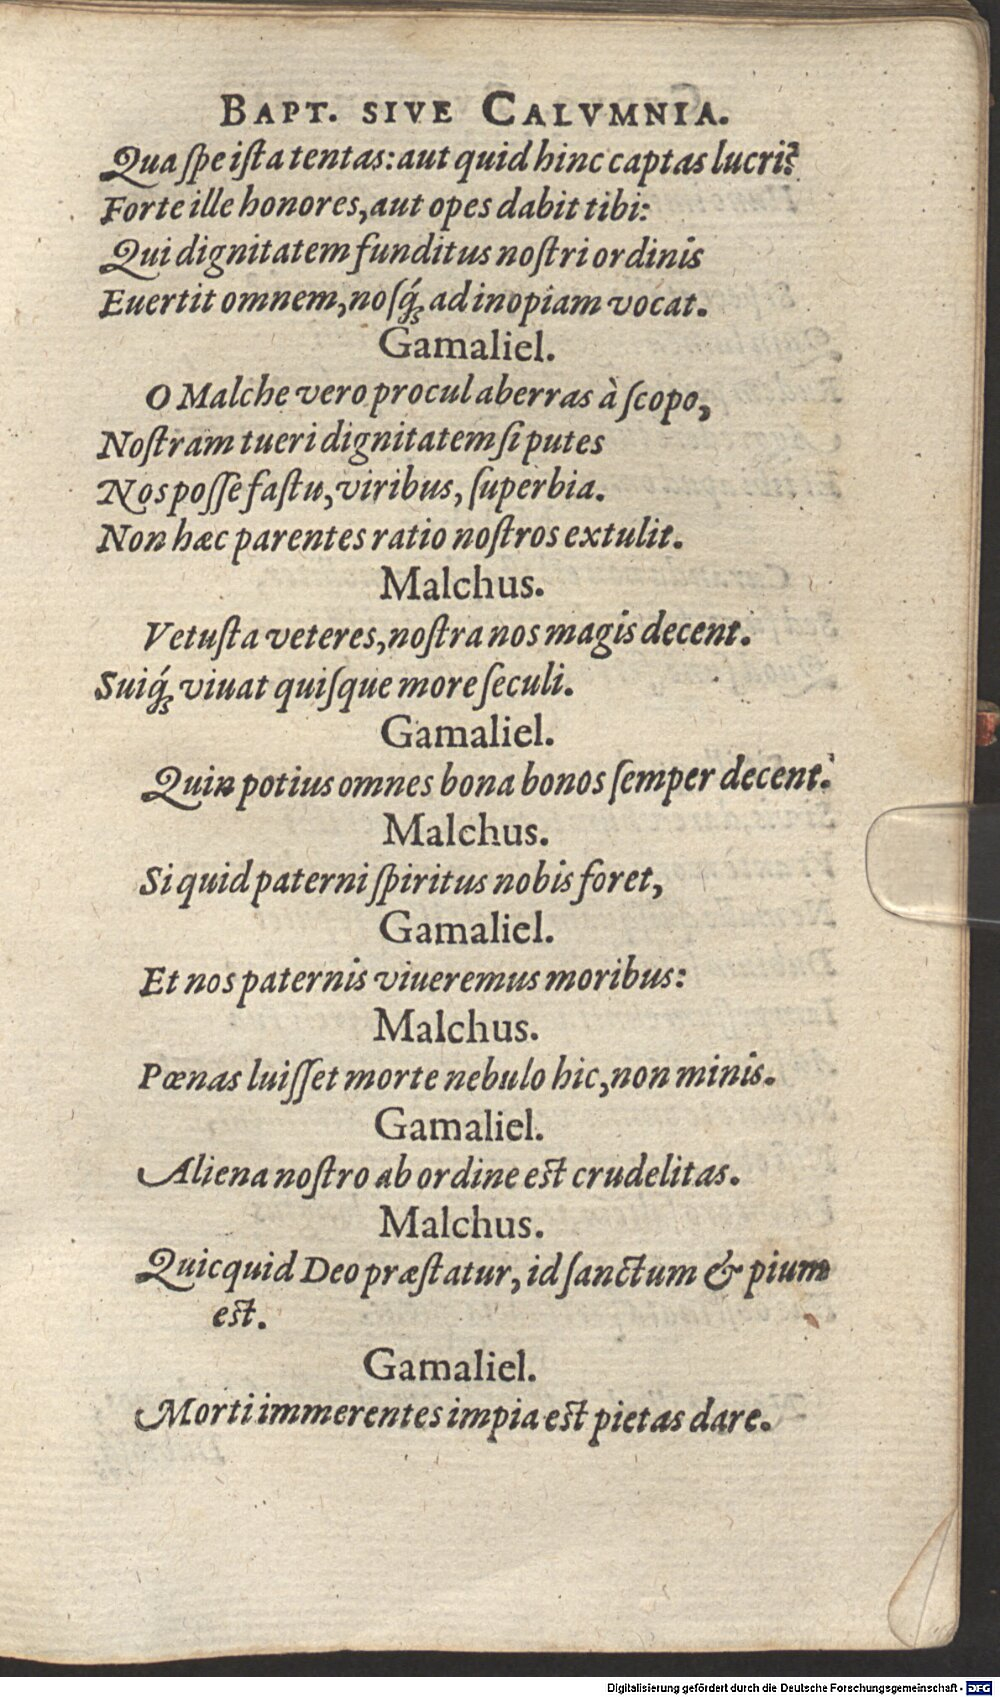 BAPT. SIVE CALVMNIA.
Qua ſpe iſta tentas: aut quid hinc captas lucri?
Forte ille honores, aut opes dabit tibi:
Qui dignitatem funditus noſtri ordinis
Euertit omnem, noſq́; ad inopiam vocat.
Gamaliel.
O Malche vero procul aberras à ſcopo,
Noſtram tueri dignitatem ſi putes
Nos poſſe faſtu, viribus, ſuperbia.
Non hæc parentes ratio noſtros extulit.
Malchus.
Vetuſta veteres, noſtra nos magis decent.
Suiq́; viuat quiſque more ſeculi.
Gamaliel.
Quin potius omnes bona bonos ſemper decent.
Malchus.
Si quid paterni ſpiritus nobis foret,
Gamaliel.
Et nos paternis viueremus moribus:
Malchus.
Pœnas luiſſet morte nebulo hic, non minis.
Gamaliel.
Aliena noſtro ab ordine eſt crudelitas.
Malchus.
Quicquid Deo præſtatur, id ſanctum & pium
eſt.
Gamaliel.
Morti immerentes impia eſt pietas dare.
Digitalisierung gefördert durch die Deutsche Forschungsgemeinschaft - DFG